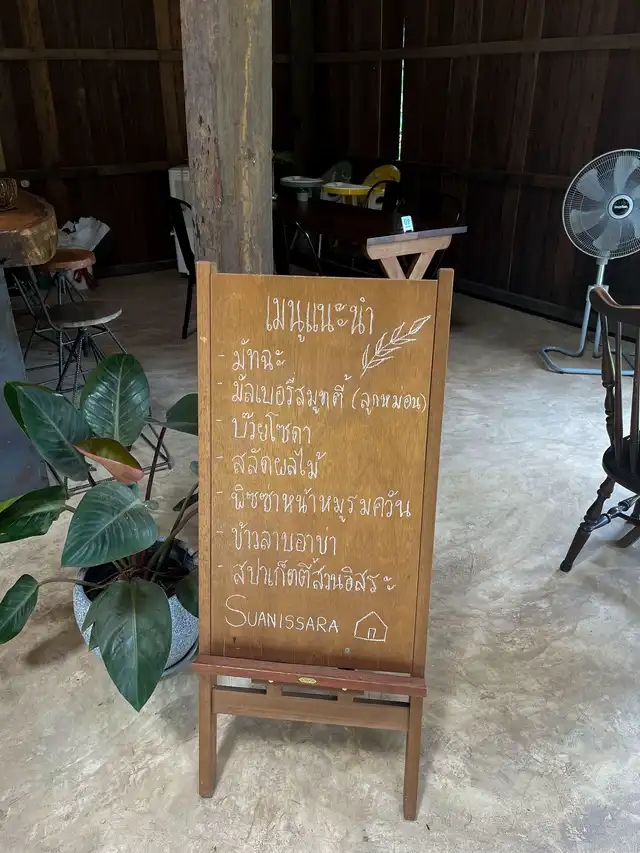 เมนูแนะนำ
- มัทฉะ
- มัลเบอรี่สมูทตี้ (ลูกหม่อน)
- บ๊วยโซดา
- สลัดผลไม้
- พิซซาหน้าหมูรมควัน
- ข้าวลาบอาข่า
- สปาเก็ตตี้สวนอิสระ
SUANISSARA